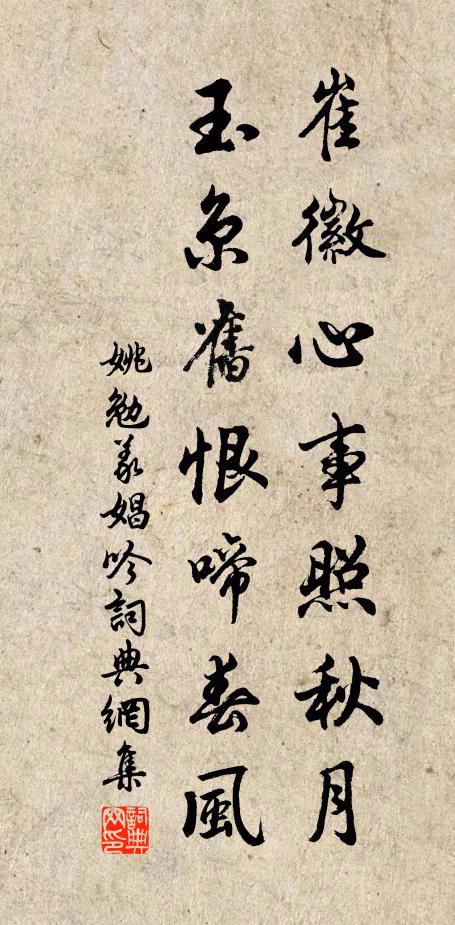 崔徽心事照秋月
玉京舊恨啼春風
姚勉義娼吟詞典網集
詞典網印